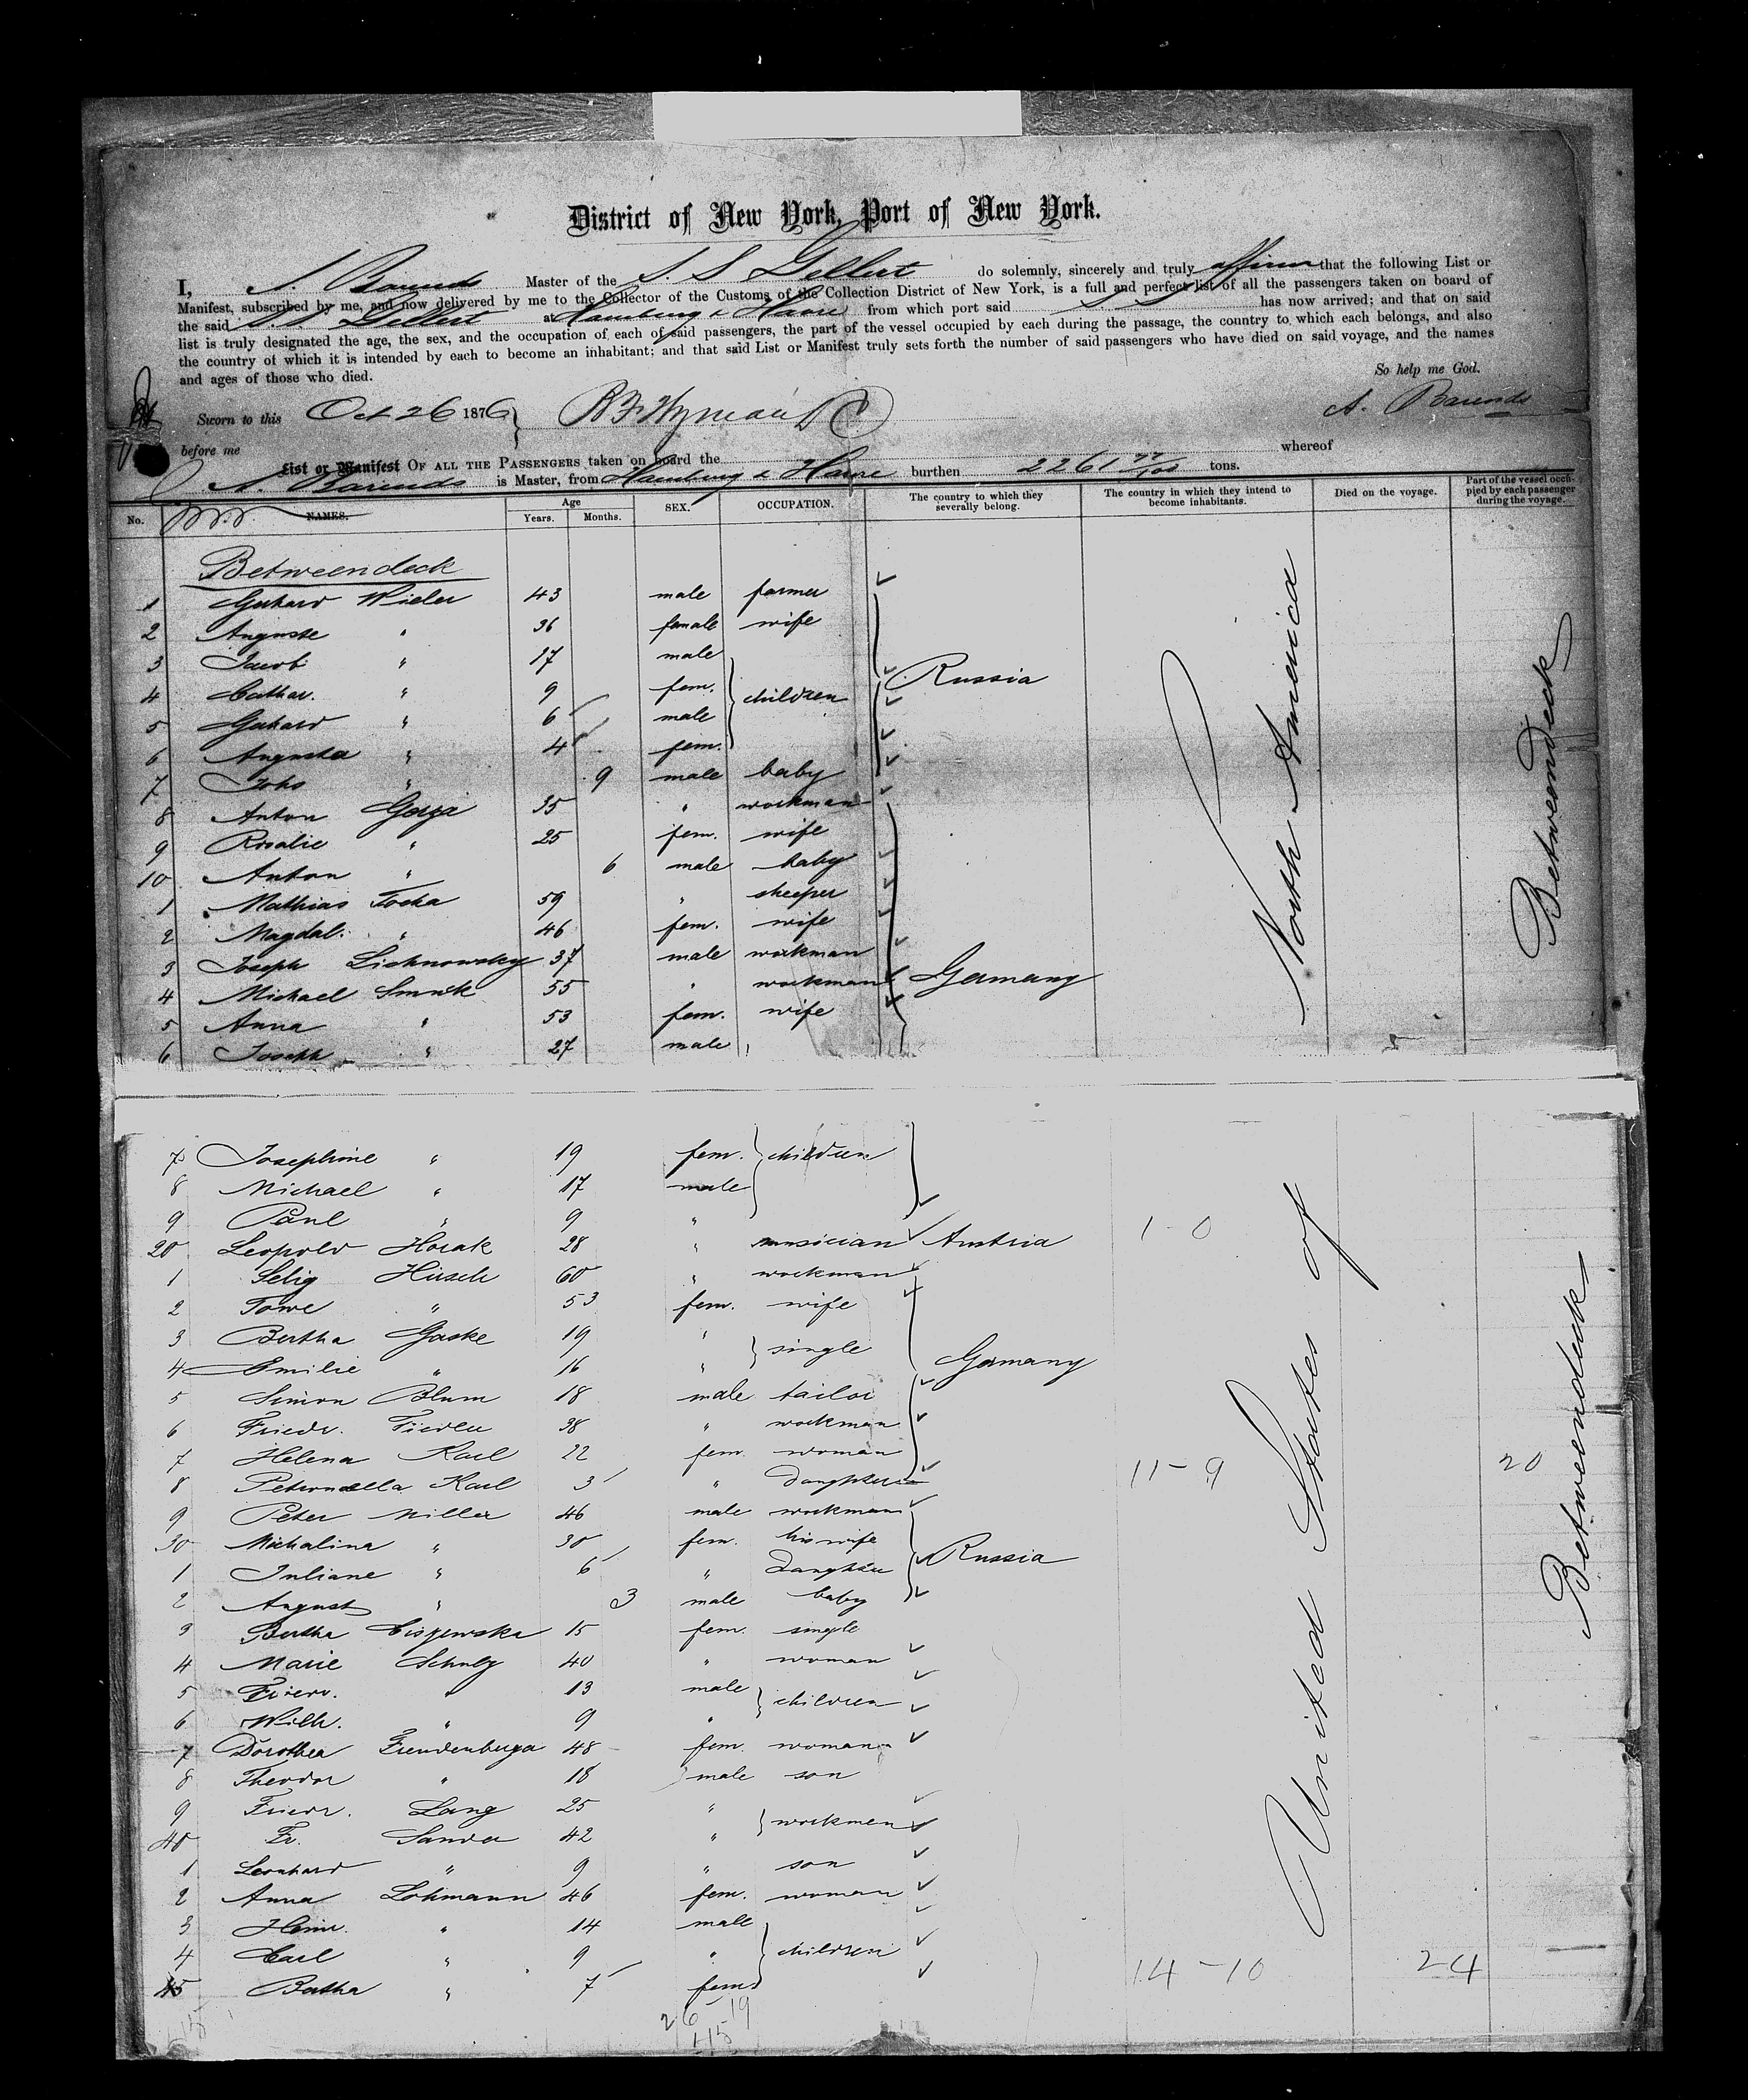 District of New York, Port of New York.
I, A. Barends Master of the S. S. Gellert do solemnly, sincerely and truly affirm that the following List or
Manifest, subscribed by me, and now delivered by me to the Collector of the Customs of the Collection District of New York, is a full and perfect list of all the passengers taken on board of
the said S. S. Gellert at Hamburg & Havre from which port said S. S. has now arrived; and that on said
list is truly designated the age, the sex, and the occupation of each of said passengers, the part of the vessel occupied by each during the passage, the country to which each belongs, and also
the country of which it is intended by each to become an inhabitant; and that said List or Manifest truly sets forth the number of said passengers who have died on said voyage, and the names
and ages of those who died.
So help me God.
Sworn to this Oct 26 1876 A. Barends
before me
List or Manifest OF ALL THE PASSENGERS taken on board the whereof
A. Barends is Master, from Hamburg & Havre burthen 2261 tons.
No. NAMES. Age Years. Months. SEX. OCCUPATION. The country to which they severally belong. The country in which they intend to become inhabitants. Died on the voyage. Part of the vessel occupied by each passenger during the voyage.
Betweendeck
1 Gerhard Wieler 43 male farmer
2 Auguste " 36 female wife
3 Jacob " 17 male
4 Cathar. " 9 fem. children Russia
5 Gerhard " 6 male
6 Augusta " 4 fem.
7 Johs " 9 male baby
8 Anton 35 " workman
9 Rosalie " 25 fem. wife
10 Anton " 6 male baby
1 Mathias Tocha 59 "
2 Magdal. " 46 fem. wife
3 Joseph Lichnowsky 37 male workman
4 Michael 55 " workman Germany
5 Anna " 53 fem. wife
6 Joseph " 27 male
North America
Betweendeck
7 Josephine " 19 fem. children
8 Michael " 17 male
9 Paul " 9 "
20 Leopold Horak 28 " musician Austria 1-0
1 Selig Hirsch 60 " workman
2 Towe " 53 fem. wife
3 Bertha Gaske 19 " single
4 Emilie " 16 " Germany
5 Simon Blum 18 male tailor
6 Friedr. Fiedler 38 " workman
7 Helena Karl 22 fem. woman
8 Petronella Karl 3 " daughter 11-9 20
9 Peter Miller 46 male workman
30 Michalina " 30 fem. his wife
1 Juliane " 6 " daughter Russia
2 August " 3 male baby
3 Bertha Ciszewska 15 fem. single
4 Marie Schulz 40 " woman
5 Friedr. " 13 male children
6 Wilh. " 9 "
7 Dorothea 48 fem. woman
8 Theodor " 18 male son
9 Friedr. Lang 25 " workmen
40 Fr. Sander 42 "
1 Leonhard " 9 " son
2 Anna Lohmann 46 fem. woman
3 Heinr. " 14 male
4 Carl " 9 " children 14-10 24
45 Bertha " 7 fem.
26-19
45
United States of
Betweendeck